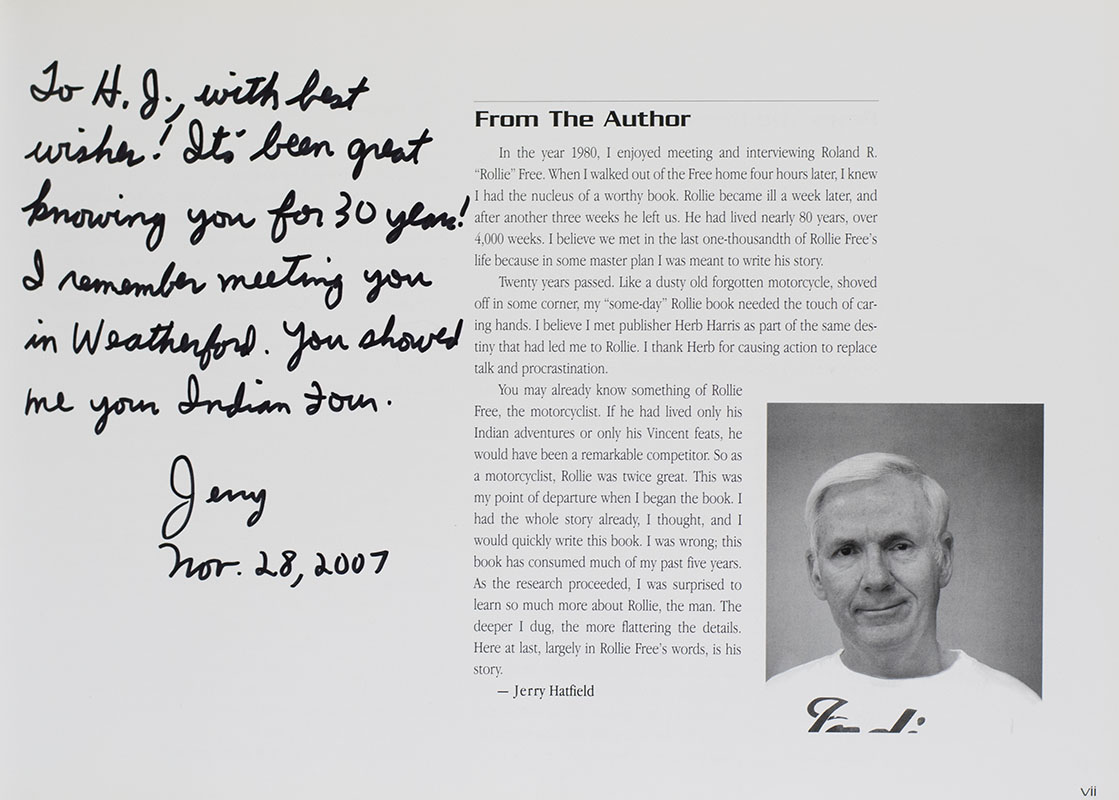 To H. J., with best
wishes! It's been great
knowing you for 30 years!
I remember meeting you
in Weatherford. You showed
me your Indian Four.
Jerry
Nov. 28, 2007
From The Author
In the year 1980, I enjoyed meeting and interviewing Roland R.
“Rollie” Free. When I walked out of the Free home four hours later, I knew
I had the nucleus of a worthy book. Rollie became ill a week later, and
after another three weeks he left us. He had lived nearly 80 years, over
4,000 weeks. I believe we met in the last one-thousandth of Rollie Free's
life because in some master plan I was meant to write his story.
Twenty years passed. Like a dusty old forgotten motorcycle, shoved
off in some corner, my “some-day” Rollie book needed the touch of car-
ing hands. I believe I met publisher Herb Harris as part of the same des-
tiny that had led me to Rollie. I thank Herb for causing action to replace
talk and procrastination.
You may already know something of Rollie
Free, the motorcyclist. If he had lived only his
Indian adventures or only his Vincent feats, he
would have been a remarkable competitor. So as
a motorcyclist, Rollie was twice great. This was
my point of departure when I began the book. I
had the whole story already, I thought, and I
would quickly write this book. I was wrong; this
book has consumed much of my past five years.
As the research proceeded, I was surprised to
learn so much more about Rollie, the man. The
deeper I dug, the more flattering the details.
Here at last, largely in Rollie Free's words, is his
story.
— Jerry Hatfield
Indi
vii